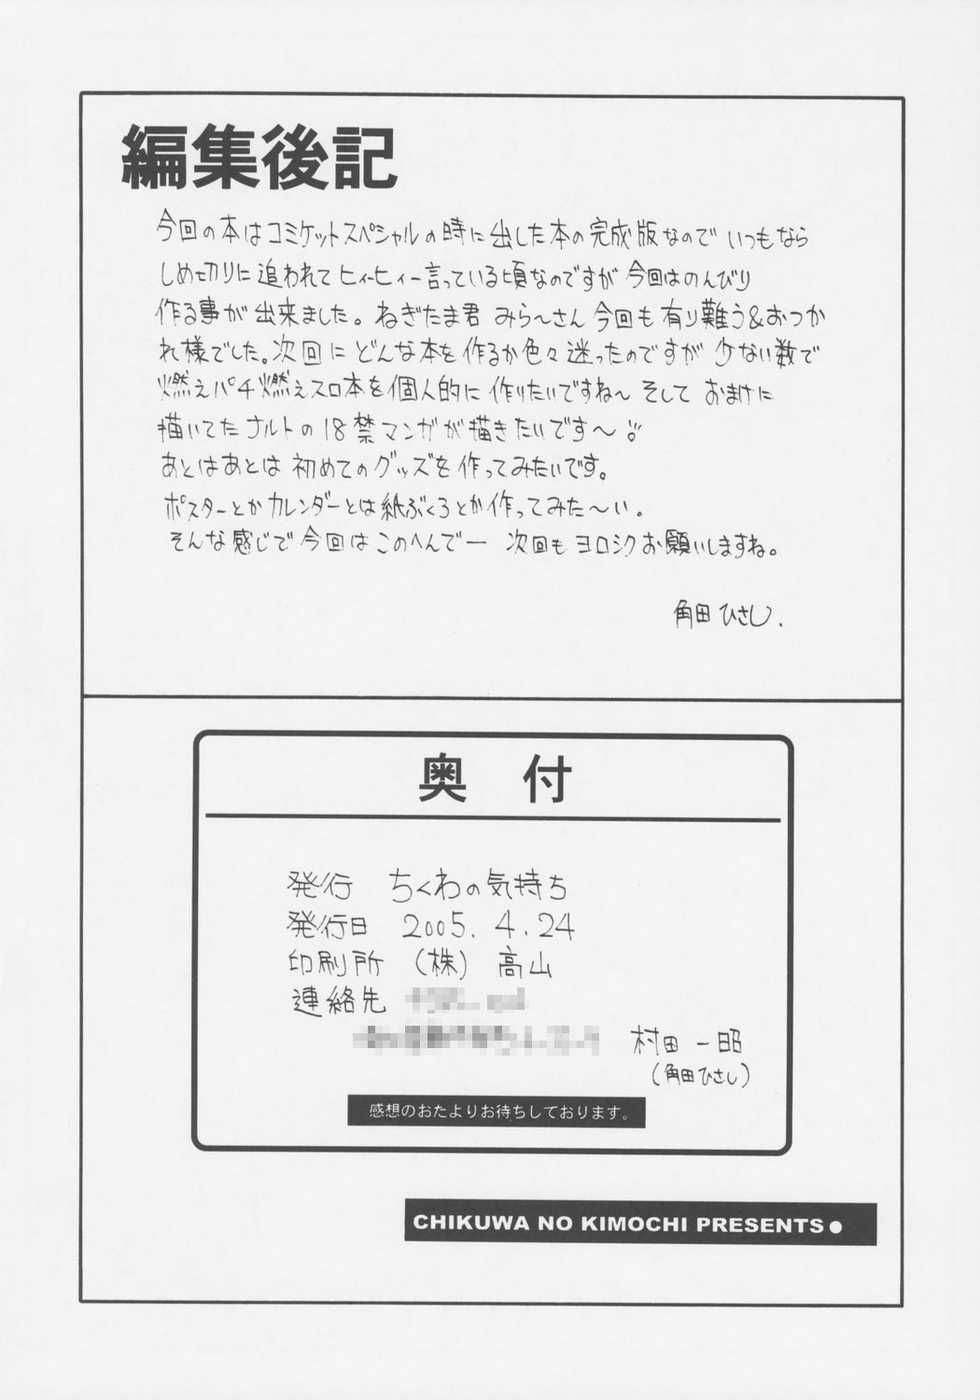 編集後記
今回の本はコミケットスペシャルの時に出した本の完成版なので いつもなら
しめ切りに追われてヒィーヒィー言っている頃なのですが 今回はのんびり
作る事が出来ました。ねぎたま君 みら〜さん 今回も有り難う&おつか
れ様でした。次回に どんな本を作るか色々迷ったのですが 少ない数で
燃えパチ燃えスロ本を個人的に 作りたいですね〜 そして おまけに
描いてたナルトの18禁マンガが描きたいです〜
あとはあとは 初めてのグッズを作ってみたいです。
ポスターとかカレンダーとは紙ぶくろとか作ってみた〜い。
そんな感じで今回はこのへんでー 次回もヨロシクお願いしますね。
角田ひさし.
奥 付
発行 ちくわの気持ち
発行日 2005. 4. 24
印刷所 (株) 高山
連絡先
村田 一昭
(角田ひさし)
感想のおたよりお待ちしております。
CHIKUWA NO KIMOCHI PRESENTS●